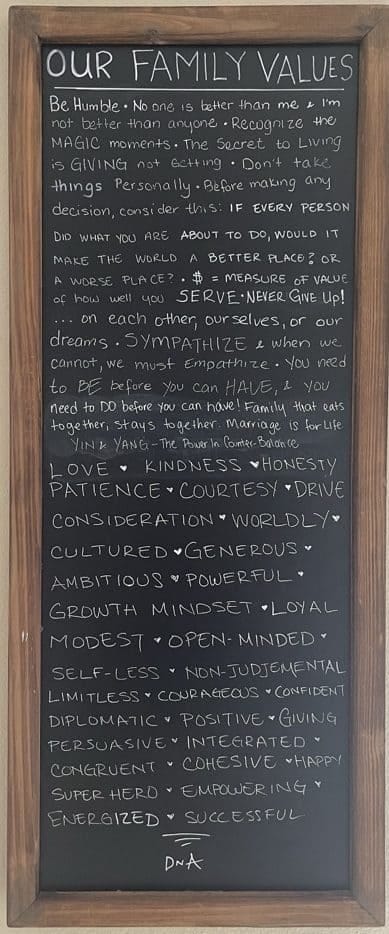 OUR FAMILY VALUES
Be Humble • No one is better than me & I'm
not better than anyone • Recognize the
MAGIC moments • The Secret to Living
is GIVING not Getting • Don't take
things Personally • Before making any
decision, consider this: IF EVERY PERSON
DID WHAT YOU ARE ABOUT TO DO, WOULD IT
MAKE THE WORLD A BETTER PLACE? OR
A WORSE PLACE? • $ = MEASURE OF VALUE
of how well you SERVE • NEVER GIVE UP!
... on each other, ourselves, or our
dreams • SYMPATHIZE & when we
cannot, we must Empathize • You need
to BE before you can HAVE, & you
need to DO before you can have! Family that eats
together, stays together. Marriage is for Life
YIN & YANG - The Power In Counter-Balance
LOVE ♥ KINDNESS ♥ HONESTY
PATIENCE ♥ COURTESY ♥ DRIVE
CONSIDERATION ♥ WORLDLY ♥
CULTURED ♥ GENEROUS ♥
AMBITIOUS ♥ POWERFUL ♥
GROWTH MINDSET ♥ LOYAL
MODEST ♥ OPEN-MINDED ♥
SELF-LESS ♥ NON-JUDJEMENTAL
LIMITLESS ♥ COURAGEOUS ♥ CONFIDENT
DIPLOMATIC ♥ POSITIVE ♥ GIVING
PERSUASIVE ♥ INTEGRATED ♥
CONGRUENT ♥ COHESIVE ♥ HAPPY
SUPER HERO ♥ EMPOWERING ♥
ENERGIZED ♥ SUCCESSFUL
DNA